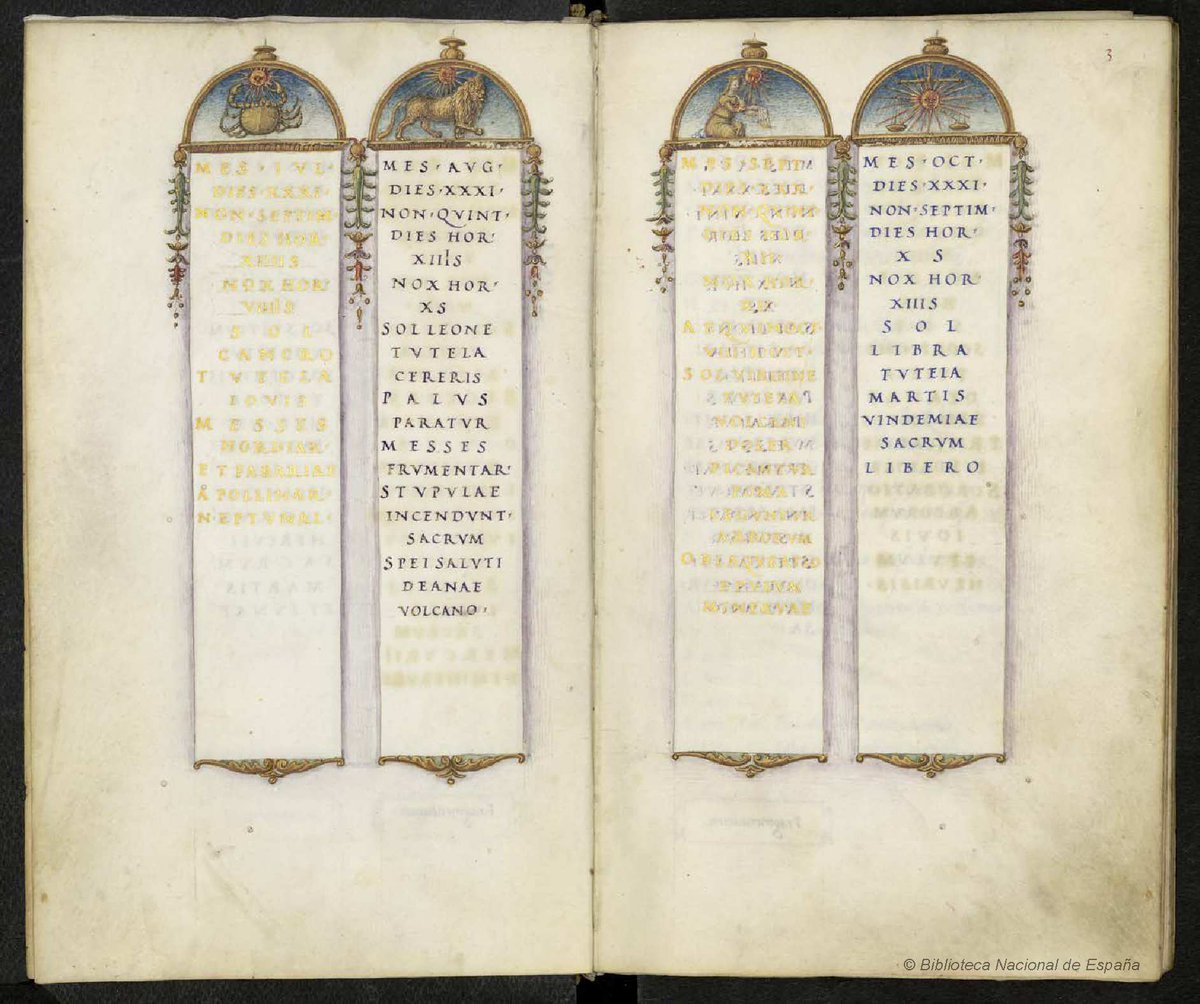 3
MES · IVL ·
DIES XXXI ·
NON · SEPTIM
DIES HOR·
XIIIIS
NOX HOR·
VIIIIS
SOL
CANCRO
TVTELA
IOVIS
MESSES
HORDIAR·
ET FABARIAE
APOLLINAR·
NEPTVNAL·
MES · AVG ·
DIES · XXXI ·
NON · QVINT ·
DIES HOR·
XIIIS
NOX HOR·
XS
SOL LEONE
TVTELA
CERERIS
PALVS
PARATVR
MESSES
FRVMENTAR·
STVPVLAE
INCENDVNT·
SACRVM
SPEI SALVTI
DEANAE
VOLCANO·
MES · SEPTM
NON QVINT
DIES HOR
NOX HOR
SOL VIRGINE
TVTELA
DOLEA
PICANTVR
POMA
ARBORVM
MINERVAE
MES · OCT ·
DIES · XXXI ·
NON · SEPTIM ·
DIES HOR·
X S
NOX HOR·
XIIIS
SOL
LIBRA
TVTELA
MARTIS
VINDEMIAE
SACRVM
LIBERO
© Biblioteca Nacional de España